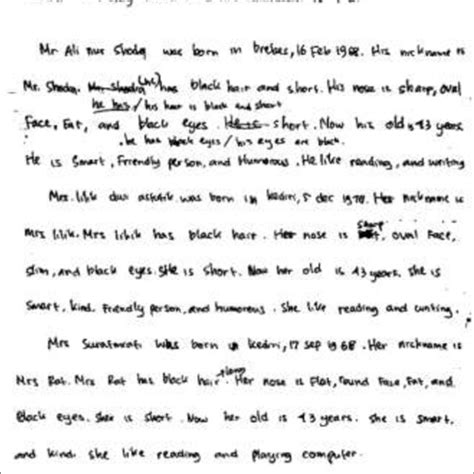 Mr Ali nur Shodiq was born in brebes, 16 Feb 1968. His nickname is
Mr. Shodiq. Mr Shodiq (he) has black hair and short. His nose is sharp, oval
he has / his hair is black and short
Face, Fat, and black eyes. He is short. Now his old is 43 years.
he has black eyes / his eyes are black.
He is Smart, Friendly person, and Humorous. He like reading, and writing
Mrs. lilik was born in kediri, 5 dec 1970. Her nickname is
Sharp
Mrs lilik. Mrs lilik has black hair. Her nose is oval Face,
slim, and black eyes. She is short. Now her old is 43 years. she is
Smart, kind, Friendly person, and humorous. she like reading and writing.
Mrs was born in kediri, 17 sep 1968. Her nickname is
long
Mrs Rat. Mrs Rat has black hair. Her nose is Flat, round Face, Fat, and
Black eyes. She is short. Now her old is 43 years. she is smart,
and kind. she like reading and playing computer.